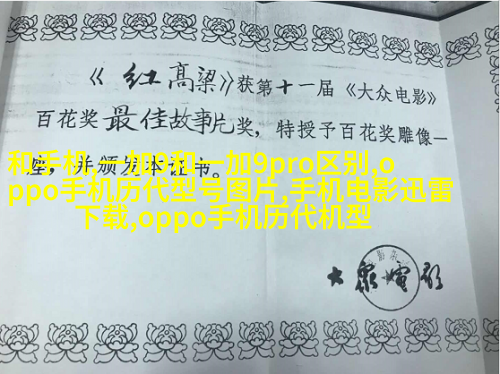 《红高粱》获第十一届《大众电影》
百花奖最佳故事片奖，特授予百花奖雕像一
座，并颁发本证书。
和手机,一加9和一加9pro区别,o
ppo手机历代型号图片,手机电影迅雷
下载,oppo手机历代机型
大众电影